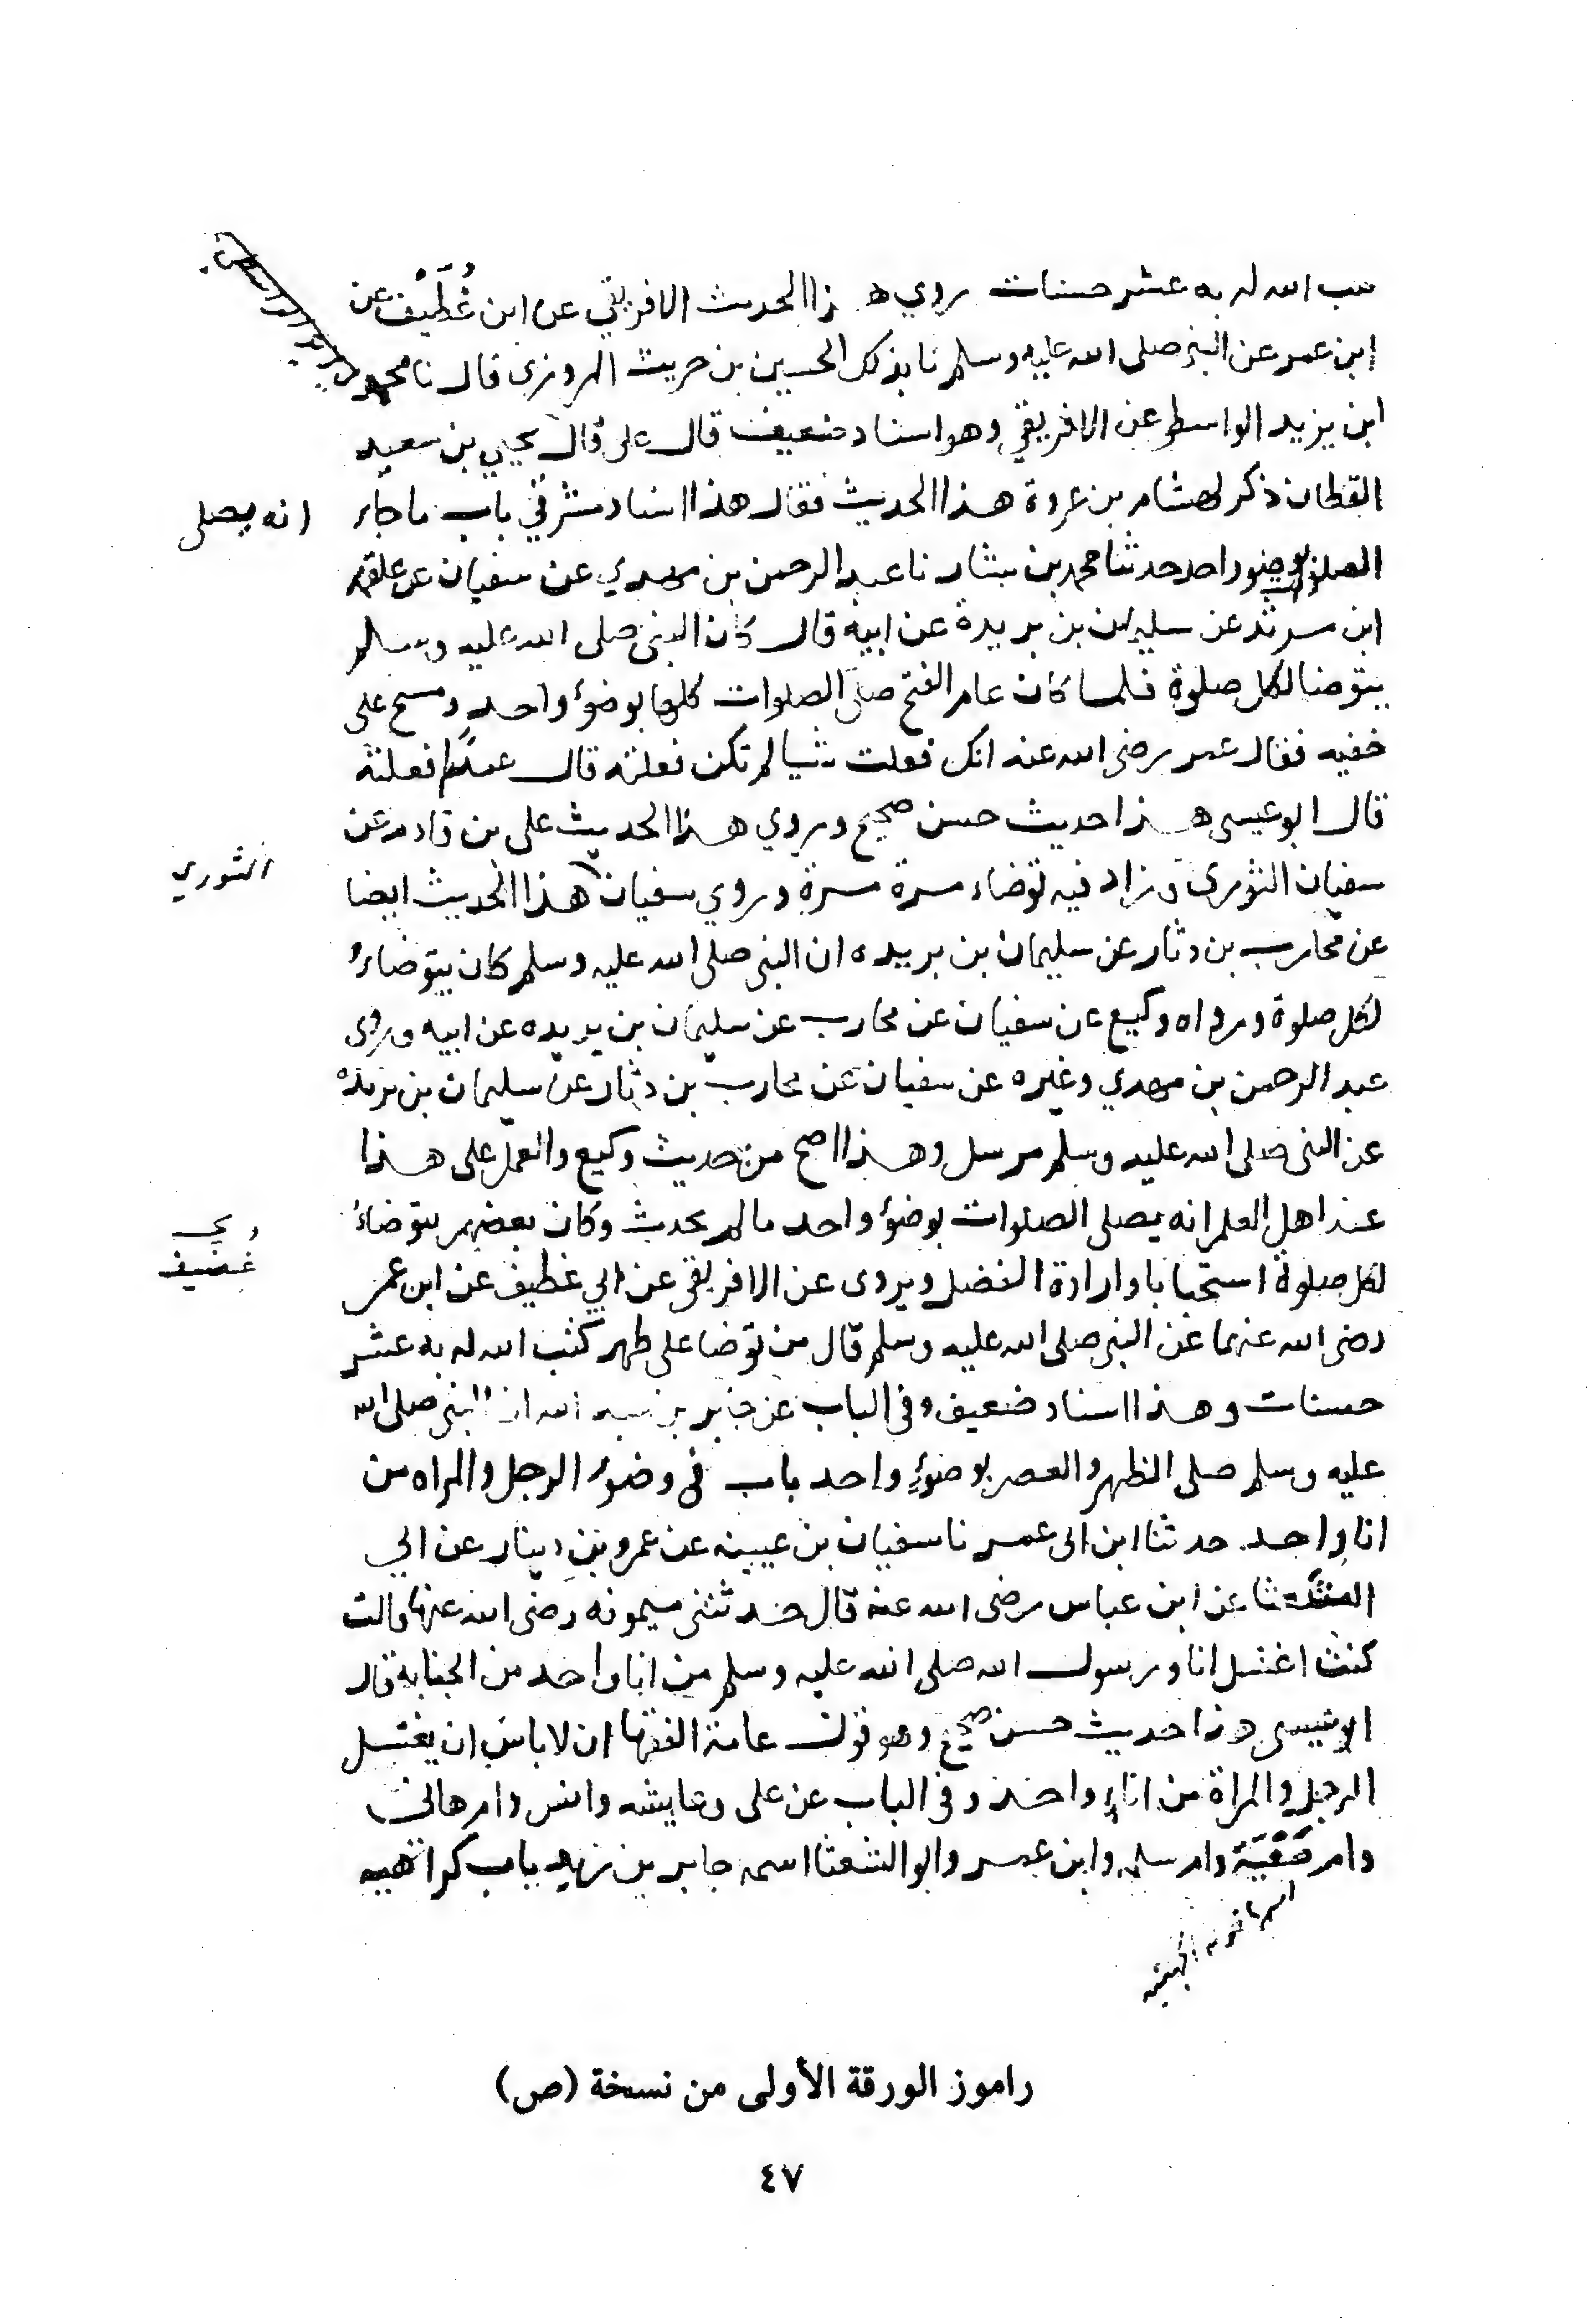 تب الله له به عشر حسنات روي هذا الحديث الافريقي عن ابن غُطَيْف عن
ابن عمر عن النبي صلى الله عليه وسلم نا بذلك الحسين بن حريث المروزي قال نا محمد
ابن يزيد الواسطي عن الافريقي وهو اسناد ضعيف قال علي قال يحيى بن سعيد
القطان ذكر لهشام بن عروة هذا الحديث فقال هذا اسناد مشرقي باب ما جاء
انه يصلي
الصلوات بوضوء واحد حدثنا محمد بن بشار نا عبد الرحمن بن مهدي عن سفيان عن علقمة
ابن مرثد عن سليمان بن بريدة عن ابيه قال كان النبي صلى الله عليه وسلم
يتوضا لكل صلوة فلما كان عام الفتح صلى الصلوات كلها بوضوء واحد ومسح على
خفيه فقال عمر رضي الله عنه انك فعلت شيا لم تكن فعلته قال عمدًا فعلته
قال ابو عيسى هذا حديث حسن صحيح وروي هذا الحديث علي بن قادم عن
سفيان الثوري وزاد فيه توضاء مرة مرة وروي سفيان هذا الحديث ايضا
الثوري
عن محارب بن دثار عن سليمان بن بريده ان النبي صلى الله عليه وسلم كان يتوضاء
لكل صلوة ورواه وكيع عن سفيان عن محارب عن سليمان بن بريده عن ابيه وروى
عبد الرحمن بن مهدي وغيره عن سفيان عن محارب بن دثار عن سليمان بن بريده
عن النبي صلى الله عليه وسلم مرسل وهذا اصح من حديث وكيع والعمل على هذا
عند اهل العلم انه يصلي الصلوات بوضوء واحد ما لم يحدث وكان بعضهم يتوضاء
لكل صلوة استحبابا وارادة الفضل ويروى عن الافريقي عن ابي غطيف عن ابن عمر
غضيف
رضي الله عنهما عن النبي صلى الله عليه وسلم قال من توضا على طهر كتب الله له به عشر
حسنات وهذا اسناد ضعيف وفي الباب عن جابر بن عبد الله ان النبي صلى الله
عليه وسلم صلى الظهر والعصر بوضوءٍ واحد باب في وضوء الرجل والمراه من
انا واحد حدثنا ابن ابي عمر نا سفيان بن عيينه عن عمرو بن دينار عن ابي
الشعثا عن ابن عباس رضي الله عنه قال حدثتني ميمونه رضي الله عنها قالت
كنت اغتسل انا ورسول الله صلى الله عليه وسلم من انا واحد من الجنابة قال
ابو عيسى هذا حديث حسن صحيح وهو قول عامة الفقها ان لا باس ان يغتسل
الرجل والمراة من اناءٍ واحد وفي الباب عن علي وعايشه وانس وام هاني
وام صُبَيَّة وام سلمه وابن عمر وابو الشعثا اسمه جابر بن زيد باب كراهيه
اسمها خوله الجهنيه
راموز الورقة الأولى من نسخة (ص)
٤٧